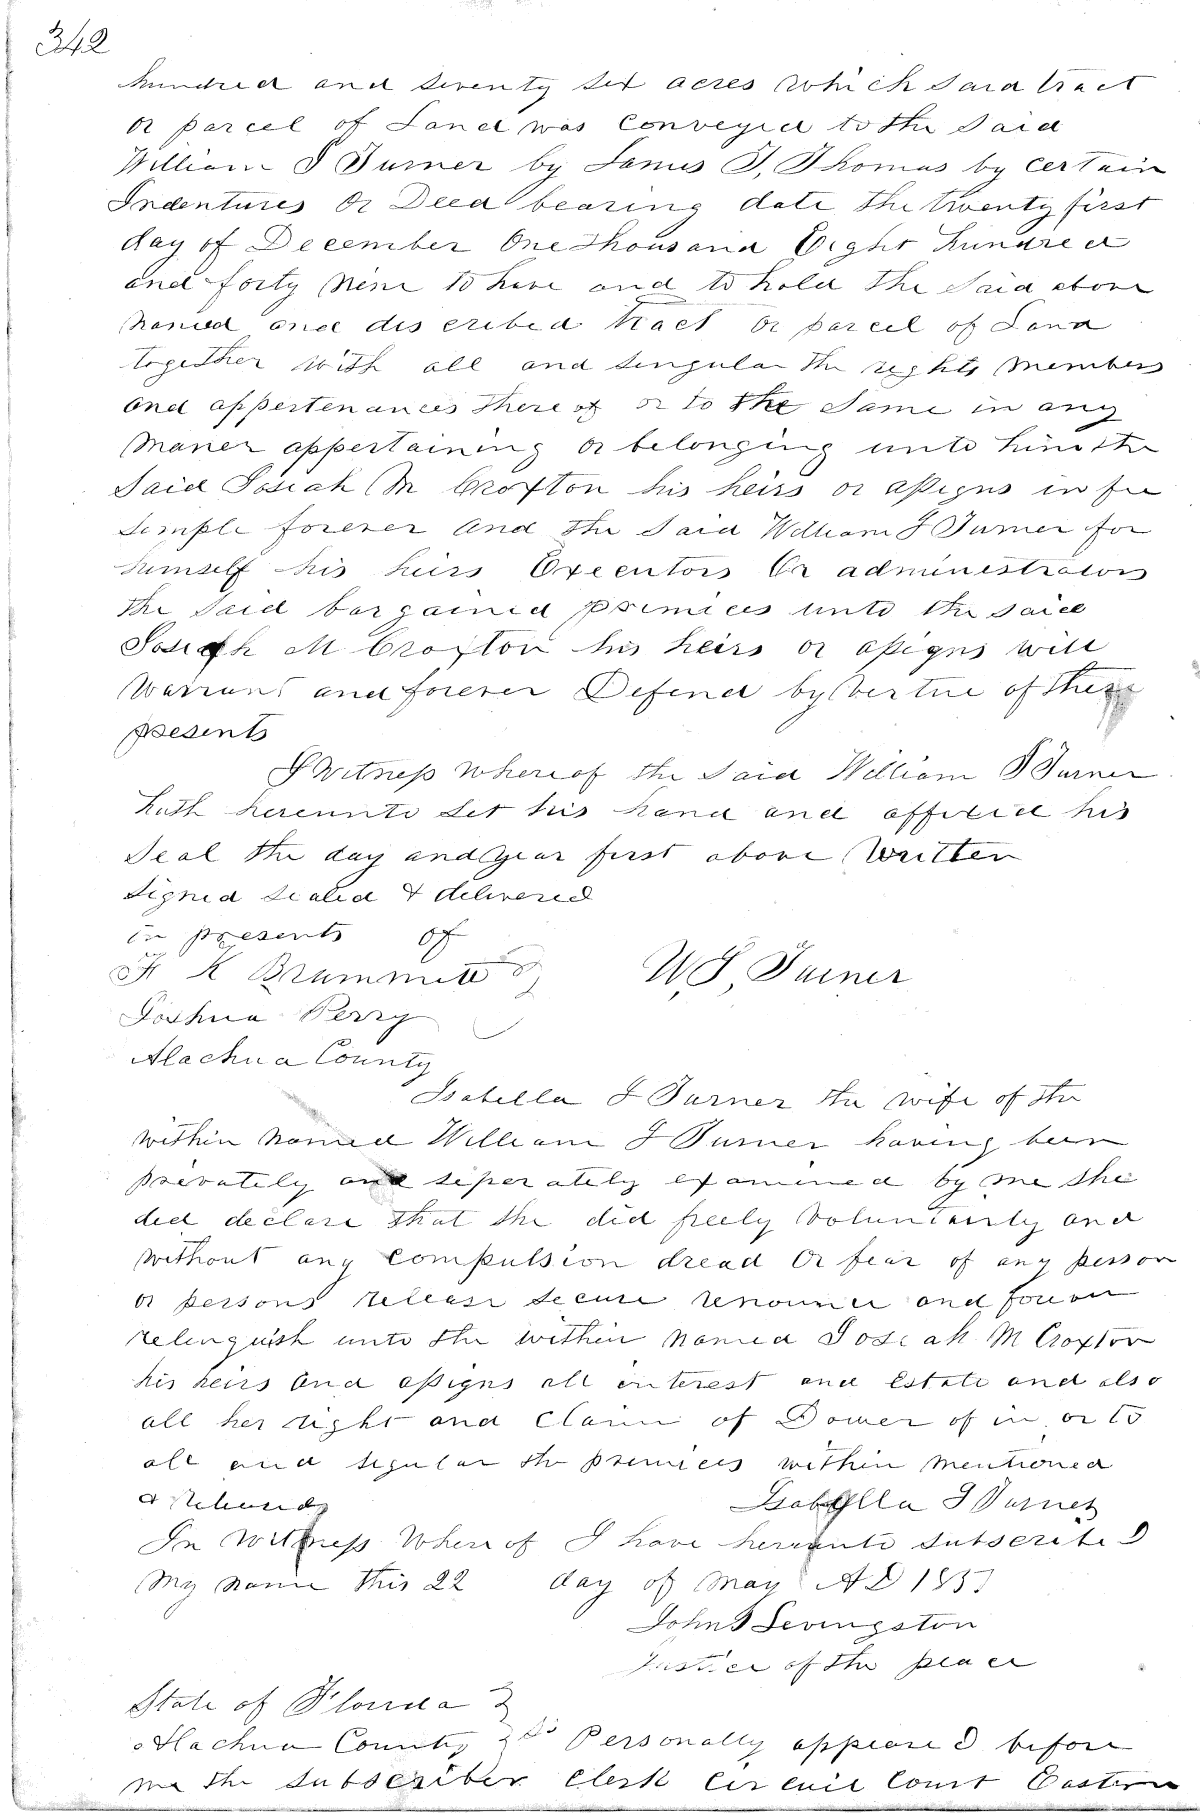 342
hundred and seventy six acres which said tract
or parcel of Land was Conveyed to the Said
William J Turner by James T, Thomas by certain
Indentures or Deed bearing date the twenty first
day of December One thousand Eight hundred
and forty nine to have and to hold the Said above
named and discribed tract or parcel of Land
together with all and singular the rights members
and appertenances there of or to the Same in any
Maner appertaining or belonging unto him the
Said Josiah M Croxton his heirs or assigns in fee
simple forever And the Said William J Turner for
himself his heirs Executors Or administrators
the said bargained premices unto the said
Josiah M Croxton his heirs or assigns will
Warrant and forever Defend by Vertue of these
presents
I Witness whereof the Said William J Turner
hath hereunto Set his hand and affixed his
Seal the day and year first above Written
Signed Sealed & delivered
in presents of
K Brummitt
W J, Turner
Joshua Perry
Alachua County
Isabella J Turner the wife of the
within named William J Turner having been
privately and seperately examined by me she
did declare that she did freely Voluntarily and
without any compulsion dread Or fear of any person
or persons release secure renounce and forever
relinquish unto the within named Josiah M Croxton
his heirs and assigns all interest and Estate and also
all her right and Claim of Dower of in or to
all and sigular the premices within mentioned
& Released
Isabella J Turner
In Witness Where of I have hereunto subscribed
My name this 22 day of May A D 1857
John Levingston
Justice of the peace
State of Florida
Alachua County Personally appeared before
me the subscriber Clerk Circuit Court Eastern